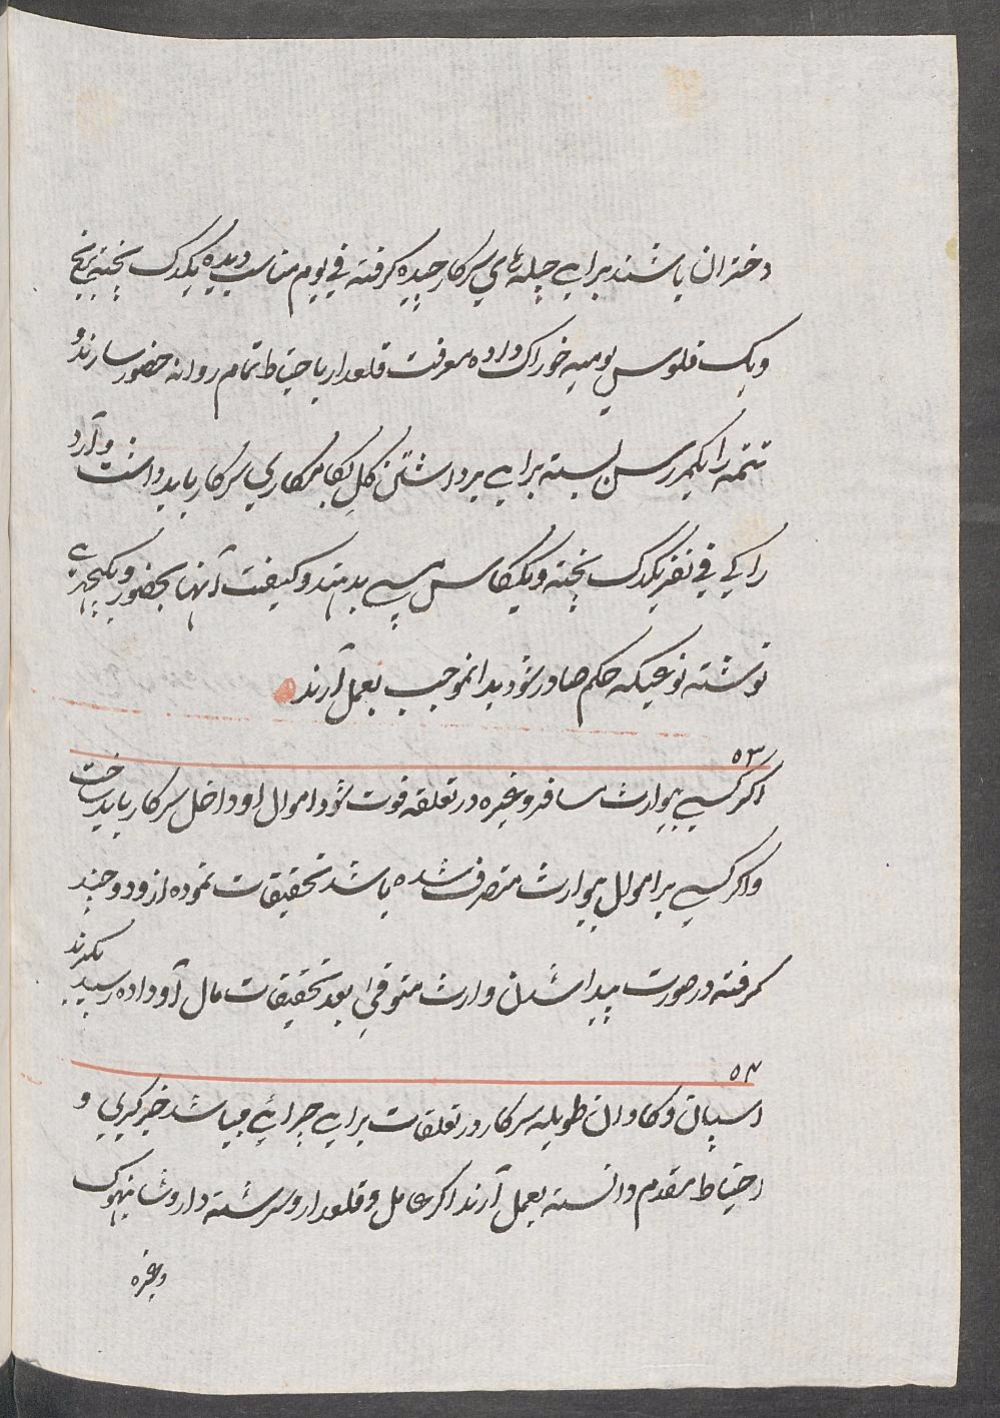 دختران باشند برای چیله های سرکار چیده گرفته فی یوم مناسب دیده یکدک پخته برنج
و یک فلوس یومیه خوراک داده معرفت قلعدار باحتیاط تمام روانه حضور سازند و
تتمه را یکمر رسن بسته برای برداشتن کل بکار سرکار باید داشت و آرد
راکی فی نفر یکدک پخته و یک کاس بدهند و کیفیت آنها بحضور و بکچهری
نوشته نوعیکه حکم صادر شود بدانموجب بعمل آرند
۵۳
اکر کسی بیوارث مسافر وغیره در تعلقه فوت شود اموال او داخل سرکار باید ساخت
و اکر کسی بر اموال بیوارث متصرف شده باشد تحقیقات نموده ازو دو چند
گرفته در صورت پیدا شدن وارث متوفی بعد تحقیقات مال او داده رسید بگیرند
۵۴
اسپان و کاوان طویله سرکار در تعلقات برای چرائی میباشد خبرگیری و
احتیاط مقدم دانسته بعمل آرند اکر عامل و قلعدار و سرشته دار و شانبهوک
وغیره